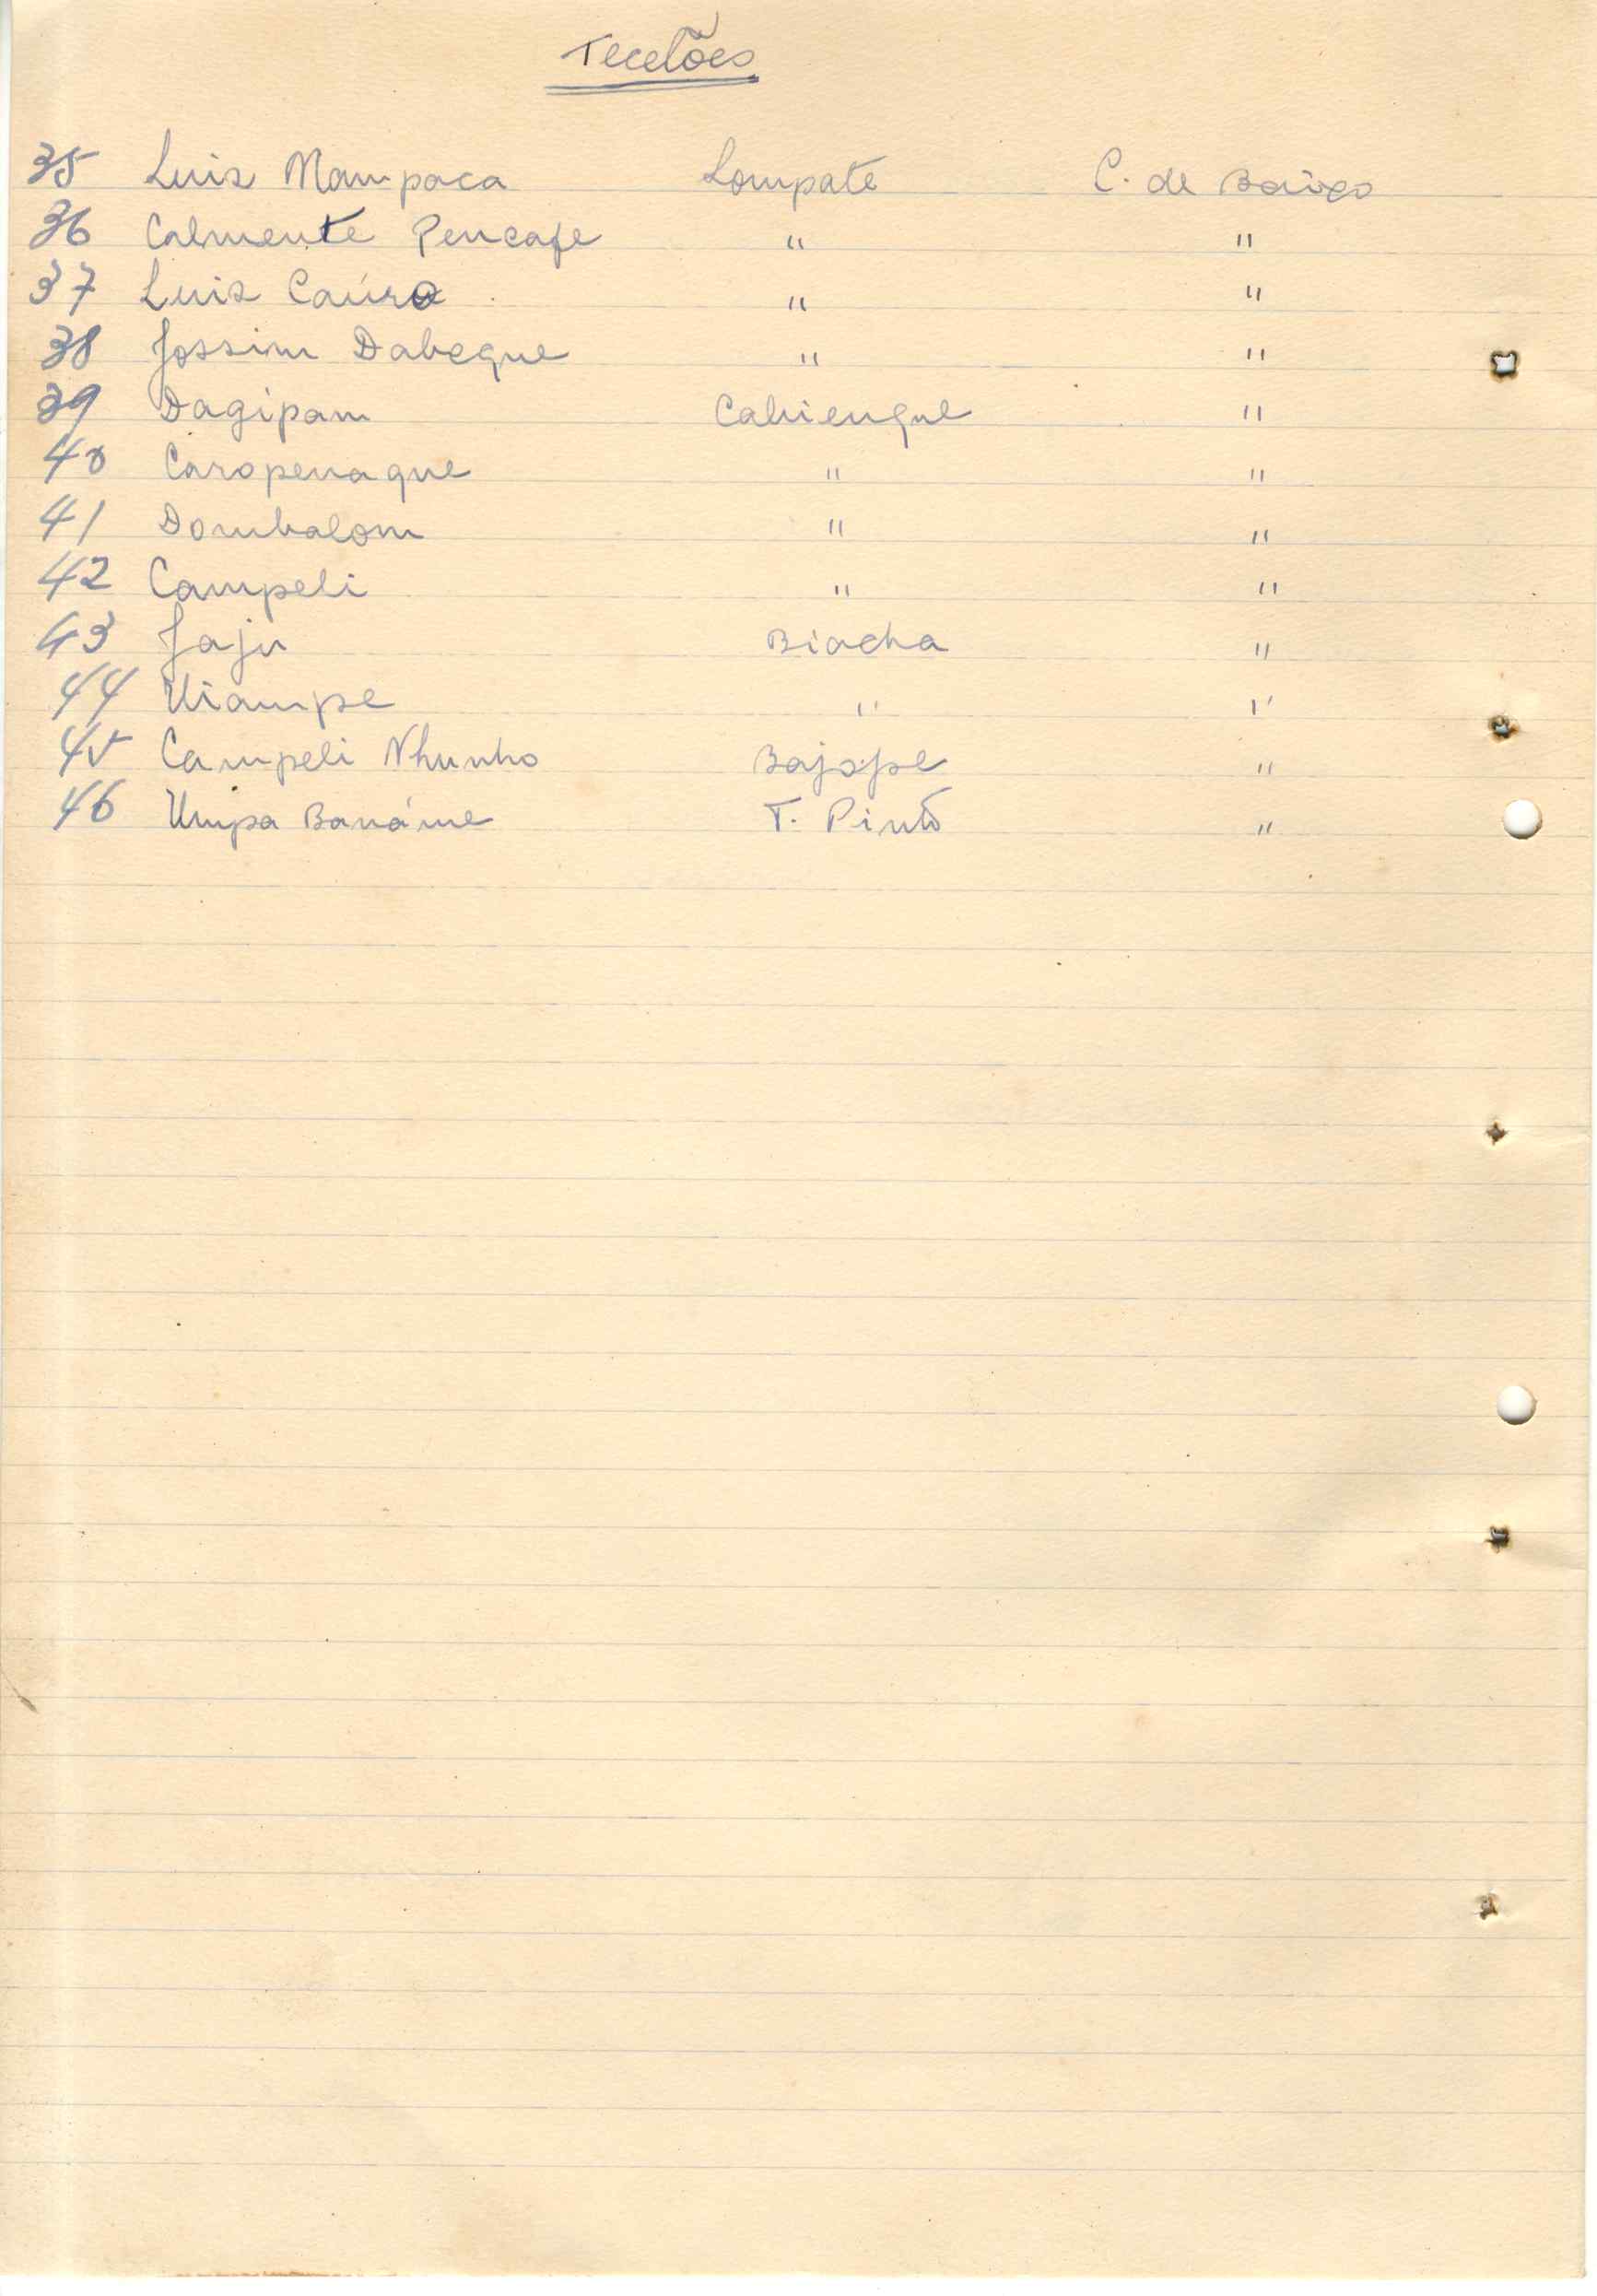 Tecelões
35 Luis Mampaca Lompate C. de Baixo
36 Calmente Pencafe " "
37 Luis Caúra " "
38 Jossim Dabegue " "
39 Dagipam Cabiengue "
40 Caropenaque " "
41 Dombalom " "
42 Campeli " "
43 Jaju Biacha "
44 Uiampe " "
45 Campeli Nhunho Bajope "
46 Umpa Banáme T. Pinto "